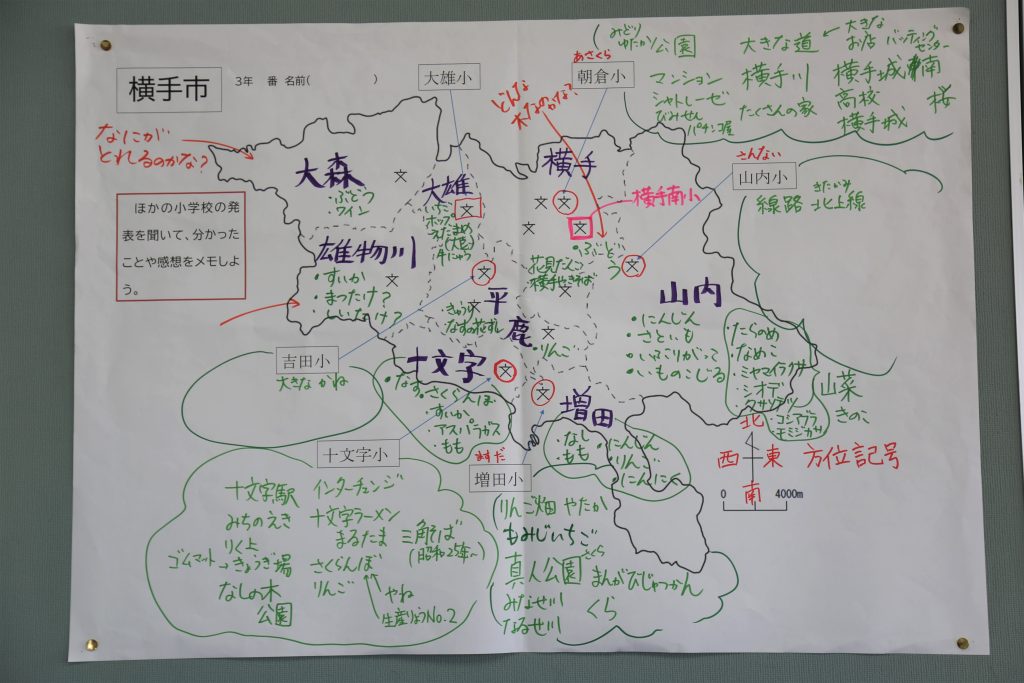 横手市
3年 番 名前( )
大雄小
あさくら
朝倉小
みどり
ゆたか公園
マンション
シャトレーゼ
びみせん
パチンコ屋
大きな道
←大きな
お店
バッティング
センター
横手川
たくさんの家
横手城南
高校
横手城
桜
なにが
とれるのかな?
どんな
木なのかな?
ほかの小学校の発
表を聞いて、分かった
ことや感想をメモしよ
う。
大森
・ぶどう
・ワイン
大雄
いちご
ホップ
えだまめ
(大豆)
牛にゅう
横手
横手南小
・ぶどう
花見だんご
横手やきそば
さんない
山内小
きたかみ
線路 北上線
雄物川
・すいか
・まつたけ?
・しいたけ?
平鹿
きゅうり
なすの花ずし
りんご
山内
・にんじん
・さといも
・いぶりがっこ
・いものこじる
・たらのめ
・なめこ
・ミヤマイラクサ
・シオデ
・コシアブラ
・モミジガサ
山菜
きのこ
吉田小
大きなかね
十文字
・なす・さくらんぼ
・すいか
・アスパラガス
・もも
増田
・なし
・もも
・にんじん
・りんご
・にんにく
北
西 東
南
方位記号
0 4000m
十文字小
十文字駅
みちのえき
りく上
ゴムマット→きょうぎ場
なしの木
公園
インターチェンジ
十文字ラーメン
まるたま
三角そば
(昭和25年~)
さくらんぼ
りんご
やね
生産りょうNo.2
ますだ
増田小
りんご畑 やたか
もみじいちご
さくら
真人公園
まんがびじゅつかん
みなせ川
なるせ川
くら